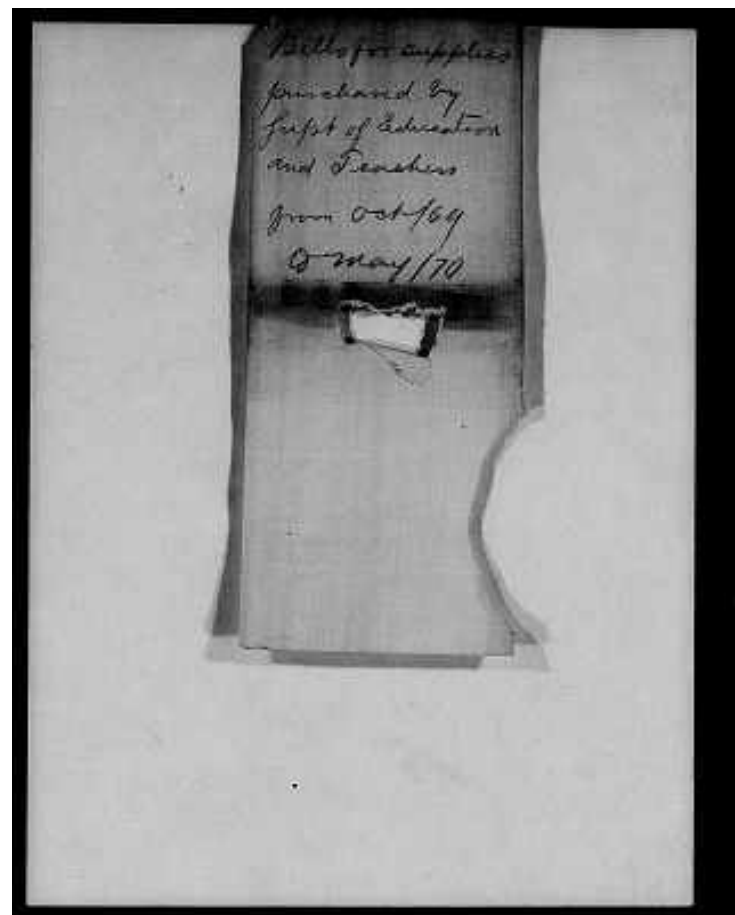 Bills for supplies
purchased by
Supt of Education
and Teachers
from Oct/69
to May/70